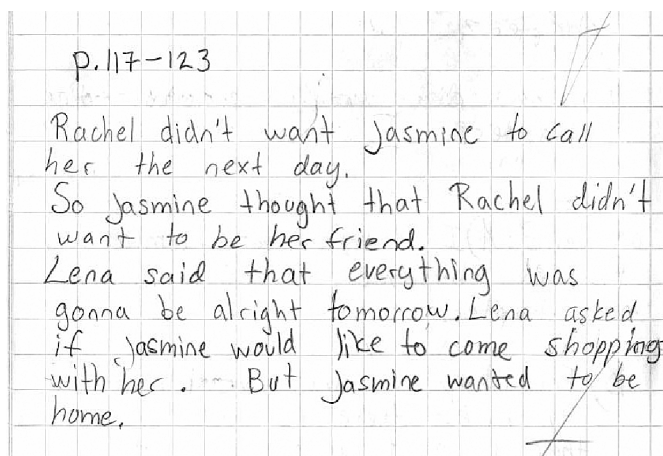 p.117-123
Rachel didn't want Jasmine to call
her the next day.
So Jasmine thought that Rachel didn't
want to be her friend.
Lena said that everything was
gonna be alright tomorrow. Lena asked
if Jasmine would like to come shopping
with her. But Jasmine wanted to be
home.